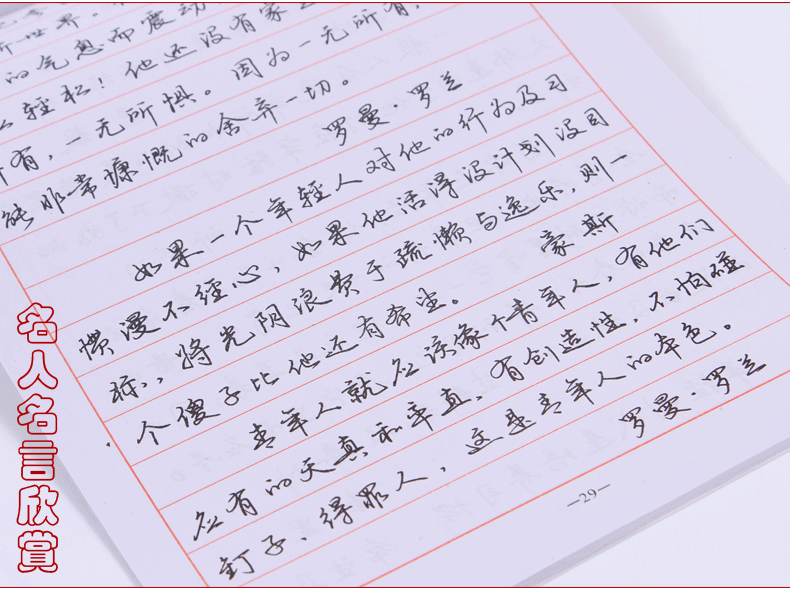 世界。
的气息而震动
么轻松！他还没有家
有，一无所惧。因为一无所有，
能非常慷慨的舍弃一切。
罗曼·罗兰
如果一个年轻人对他的行为及习
惯漫不经心，如果他活得没计划没目
标，将光阴浪费于疏懒与逸乐，则一
个傻子比他还有希望。 豪斯
青年人就应该像个青年人，有他们
应有的天真和平直，有创造性，不怕碰
钉子、得罪人，这是青年人的本色。
罗曼·罗兰
—29—
名人名言欣賞